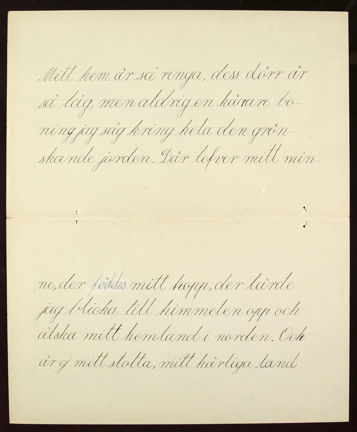 Mitt hem är så ringa, dess dörr är
så låg, men aldrig en kärare bo-
ning jag såg kring hela den grön-
skande jorden. Där lefver mitt min-
ne, der föddes mitt hopp, der lärde
jag blicka till himmelen opp och
älska mitt hemland i norden. Och
är ej mitt stolta, mitt härliga land